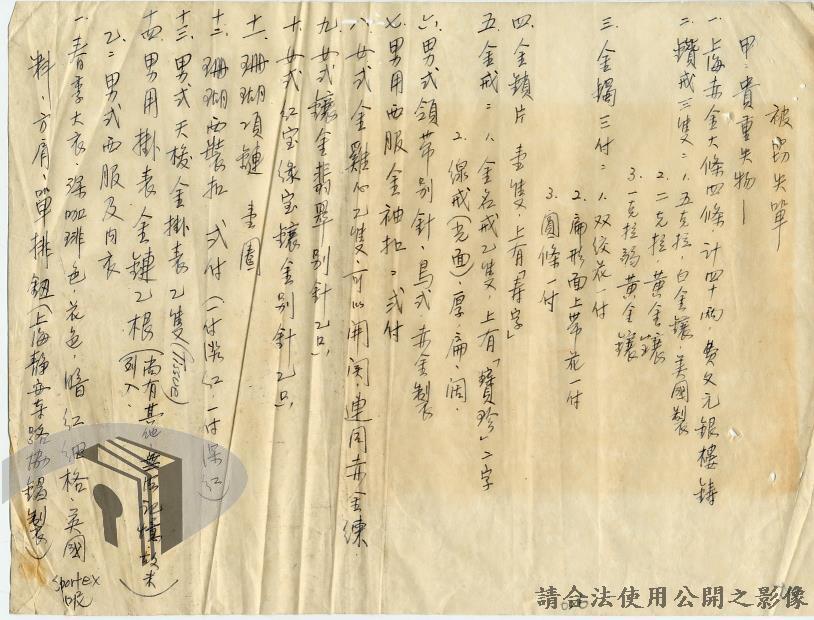 被竊失單
甲:貴重失物—
一.上海赤金大條四條.計四十兩.費文元銀樓鑄
二.鑽戒三隻:1.五克拉.白金鑲.美國製
2.二克拉.黃金鑲
3.一克拉弱黃金鑲
三.金鐲三付:1.双絞花一付
2.扁形面上帶花一付
3.圓條一付
四.金鎖片 壹隻,上有「壽字」
五.金戒:1.金名戒乙隻,上有「寶珍」二字
2.線戒(光面),厚.扁.闊.
六.男式領帶別針.馬式赤金製
七.男用西服金袖扣:弍付
八.女式金雞心乙隻可以開関.連同赤金鍊.
九.女式鑲金翡翠別針乙只.
十.女式紅宝綠宝鑲金別針乙只.
十一.珊瑚項鏈 壹圍
十二.珊瑚西裝扣 弍付(一付淡紅.一付深紅)
十三.男式天梭金掛表乙隻(Tissue)
十四.男用掛表金鏈乙根(尚有其他.無法記憶故未列入.)
乙:男式西服及內衣
一.春季大衣:深咖啡色.花色.暗紅細格.英國Sportex呢
料.方肩.單排鈕(上海靜安寺路協錩製)
請合法使用公開之影像